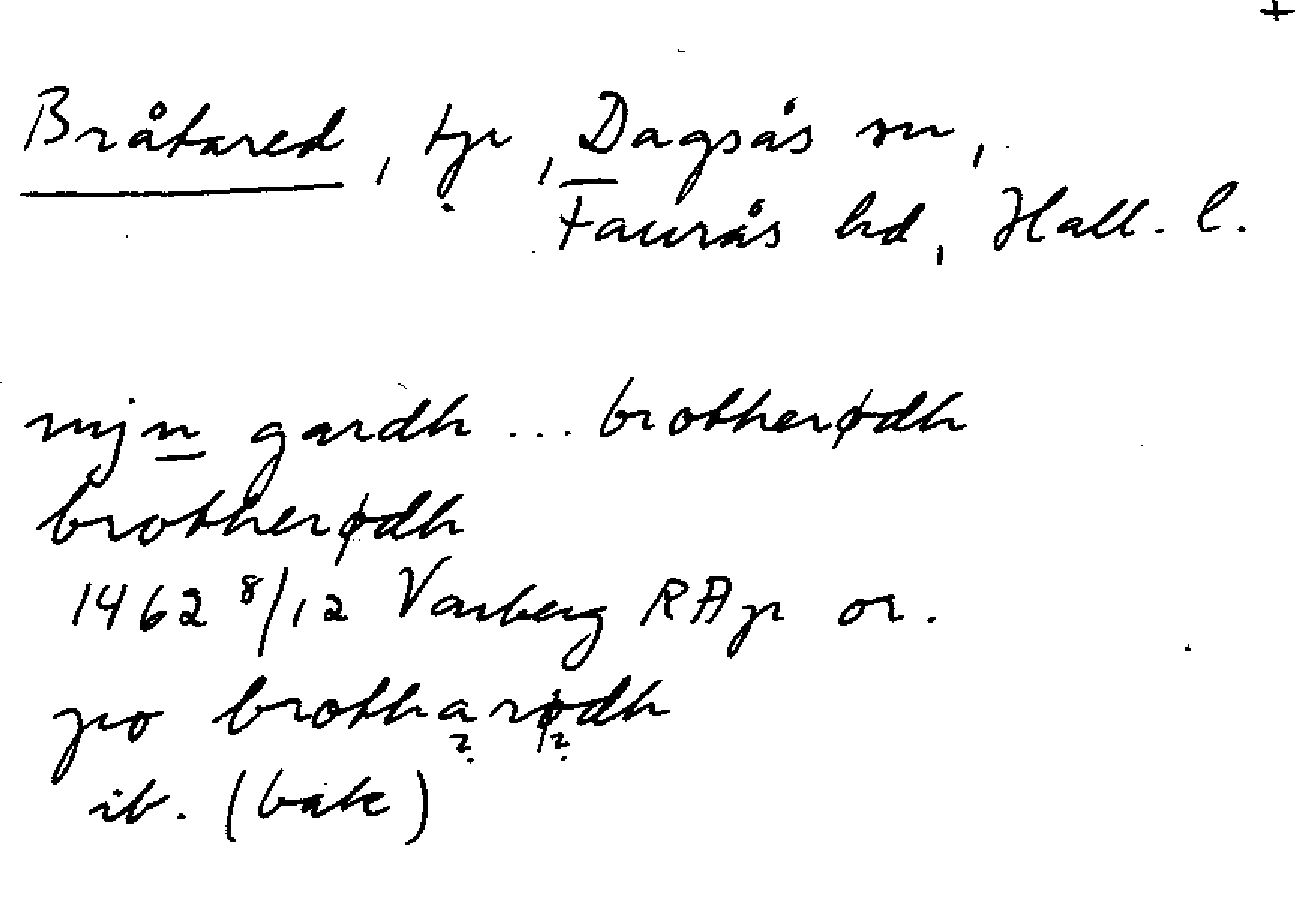 +
Bråtared, tjr, Dagsås sn,
Faurås hd, Hall. l.
mijn gardh ... brottherødh
brottherødh
1462 8/12 Varberg RAp or.
po brottharødh
? ?
ib. (bak)